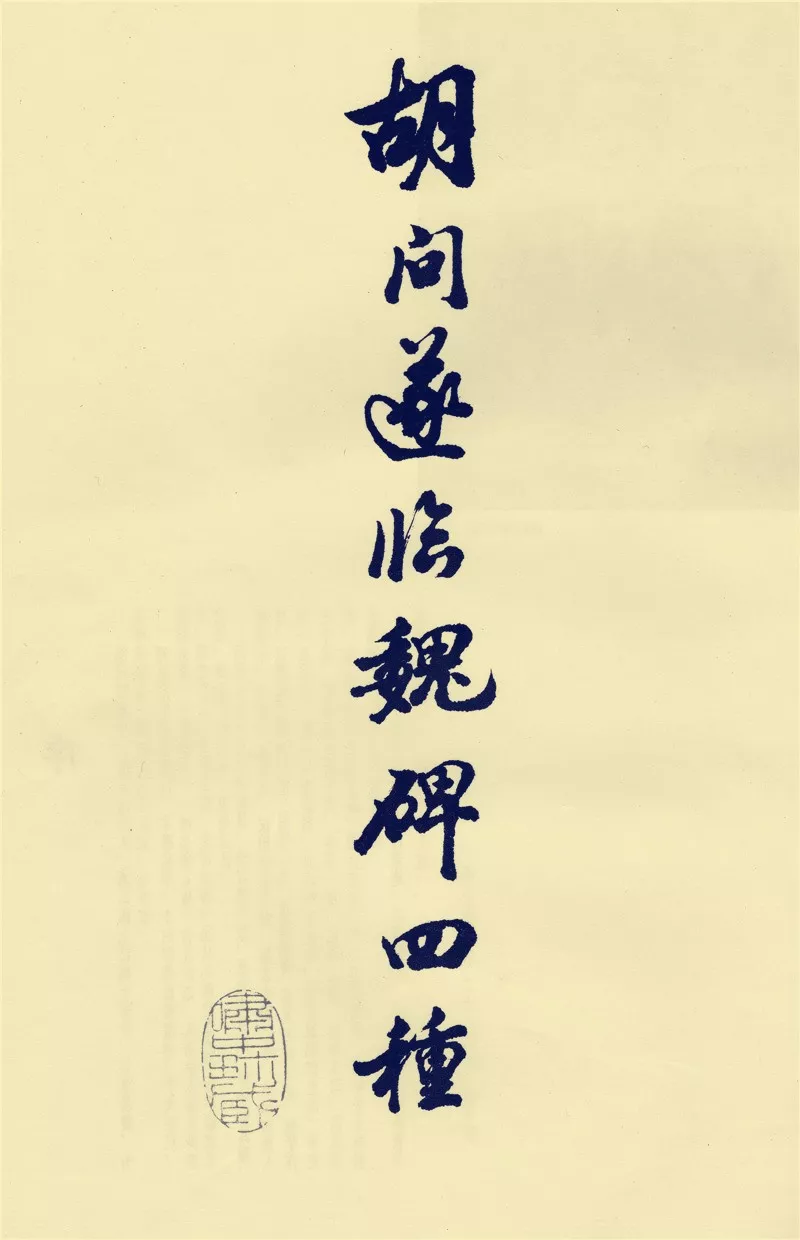 胡问遂临魏碑四種